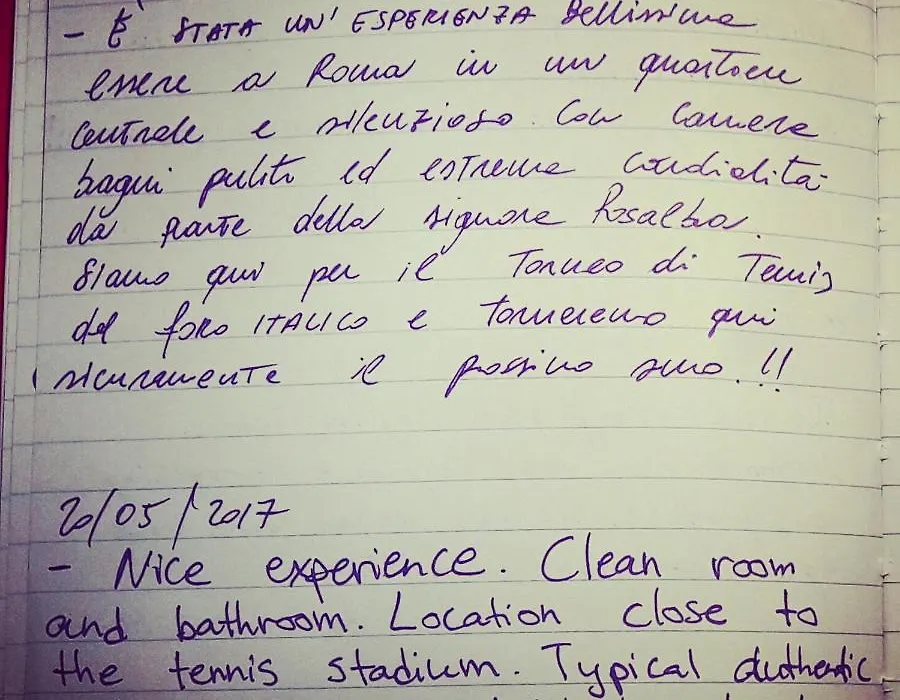 - È STATA UN' ESPERIENZA Bellissima
essere a Roma in un quartiere
centrale e silenzioso. Con camere
bagni puliti ed estrema cordialità
da parte della signora Rosalba.
Siamo qui per il Torneo di Tennis
del foro ITALICO e torneremo qui
sicuramente il prossimo anno.!!
20/05/2017
- Nice experience. Clean room
and bathroom. Location close to
the tennis stadium. Typical authentic